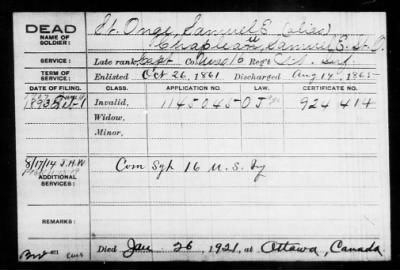 DEAD
NAME OF SOLDIER:
St. Onge, Samuel E. (alias)
Chapleau, Samuel E. St. O.
SERVICE:
Late rank, Capt Co. Unas 16 Reg't U.S. Inf
TERM OF SERVICE:
Enlisted Oct 26, 1861 Discharged Aug 14, 1865
DATE OF FILING. CLASS. APPLICATION NO. CERTIFICATE NO.
1893 Invalid, 1145045 924414
Widow,
Minor,
8/17/14 J.H.W
ADDITIONAL SERVICES:
Com Sgt 16 U.S. Iy
REMARKS:
Died Jan 26, 1921, at Ottawa, Canada